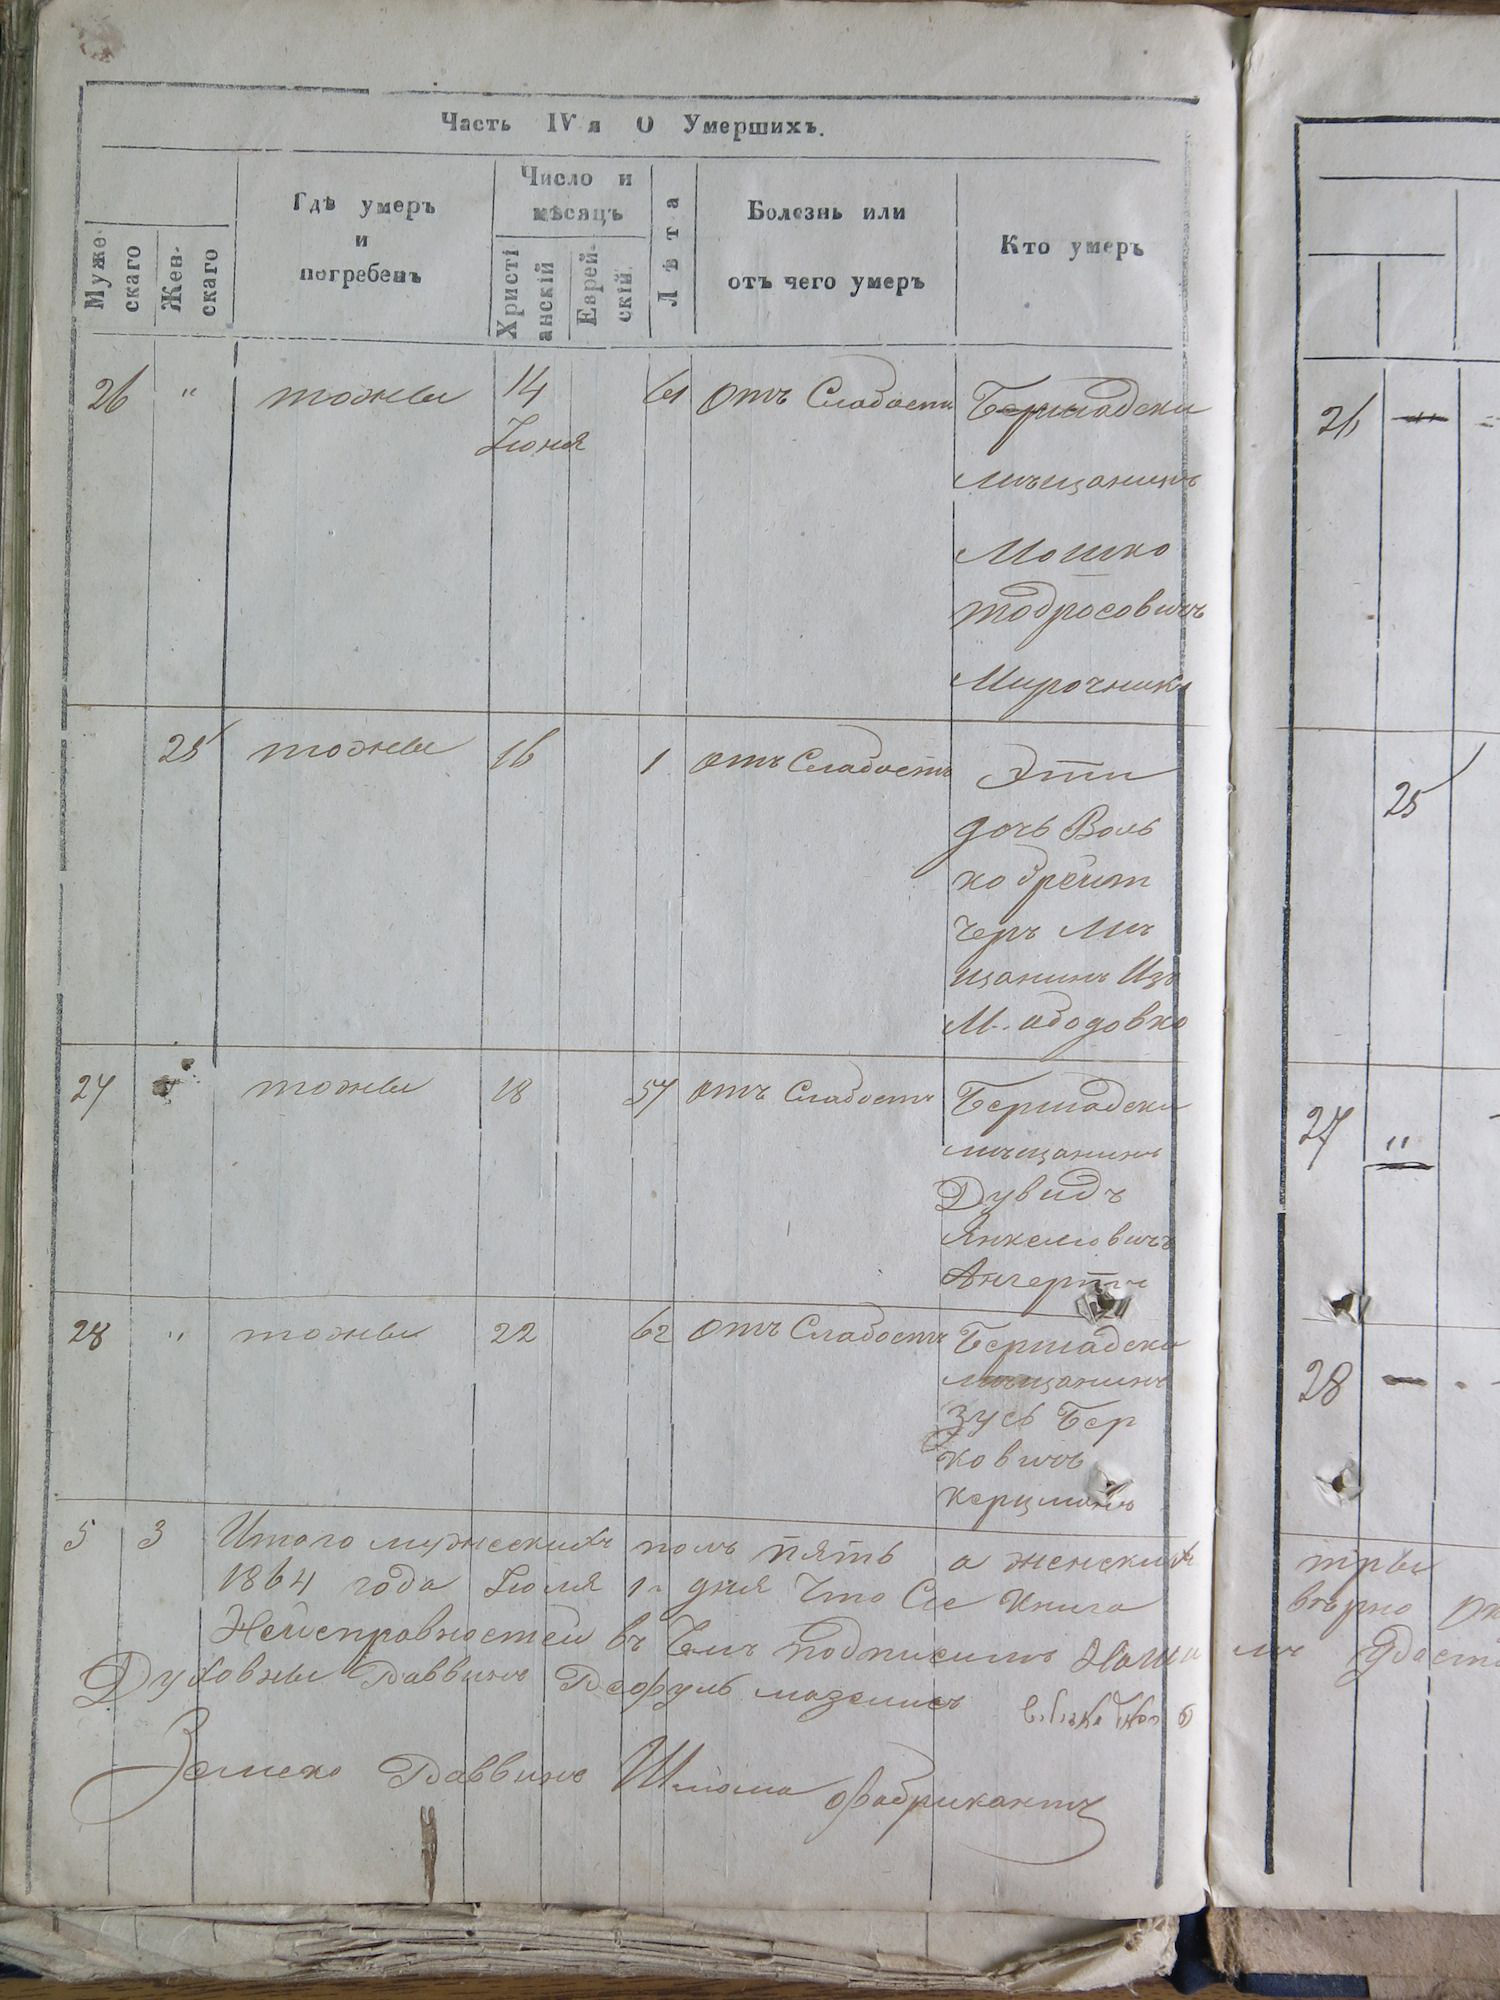 Часть IVя О Умершихъ.
Муже-
скаго
Жен-
скаго
Гдѣ умеръ
и
погребенъ
Число и
мѣсяцъ
Христі
анскій
Еврей-
скій.
Лѣта
Болезнь или
отъ чего умеръ
Кто умеръ
26 " тожъе 14 61 отъ Слабости Бершадски
Іюня
мѣщанинъ
Мошко
тодросовичъ
Мирочникъ
25 тожъе 16 1 отъ Слабость Эти
дочь Воль
ко
черъ Мѣ
щанинъ Изъ
М. ободовко
27 тожъе 18 57 отъ Слабость Бершадски
мѣщанинъ
Дувидъ
Янкелювичъ
28 " тожъе 22 62 отъ Слабость Бершадски
мѣщанинъ
Зусь Бер
ковичъ
Керцманъ
5 3 Итого мужескихъ полъ пять а женских
1864 года Іюля 1го дня Что Сие Книга
Неисправностей въ подписимъ Наши
Духовные Раввинъ Рефуль
Земско Раввинъ Шлома Фабрикантъ
26
25
27 "
28
тры
верно